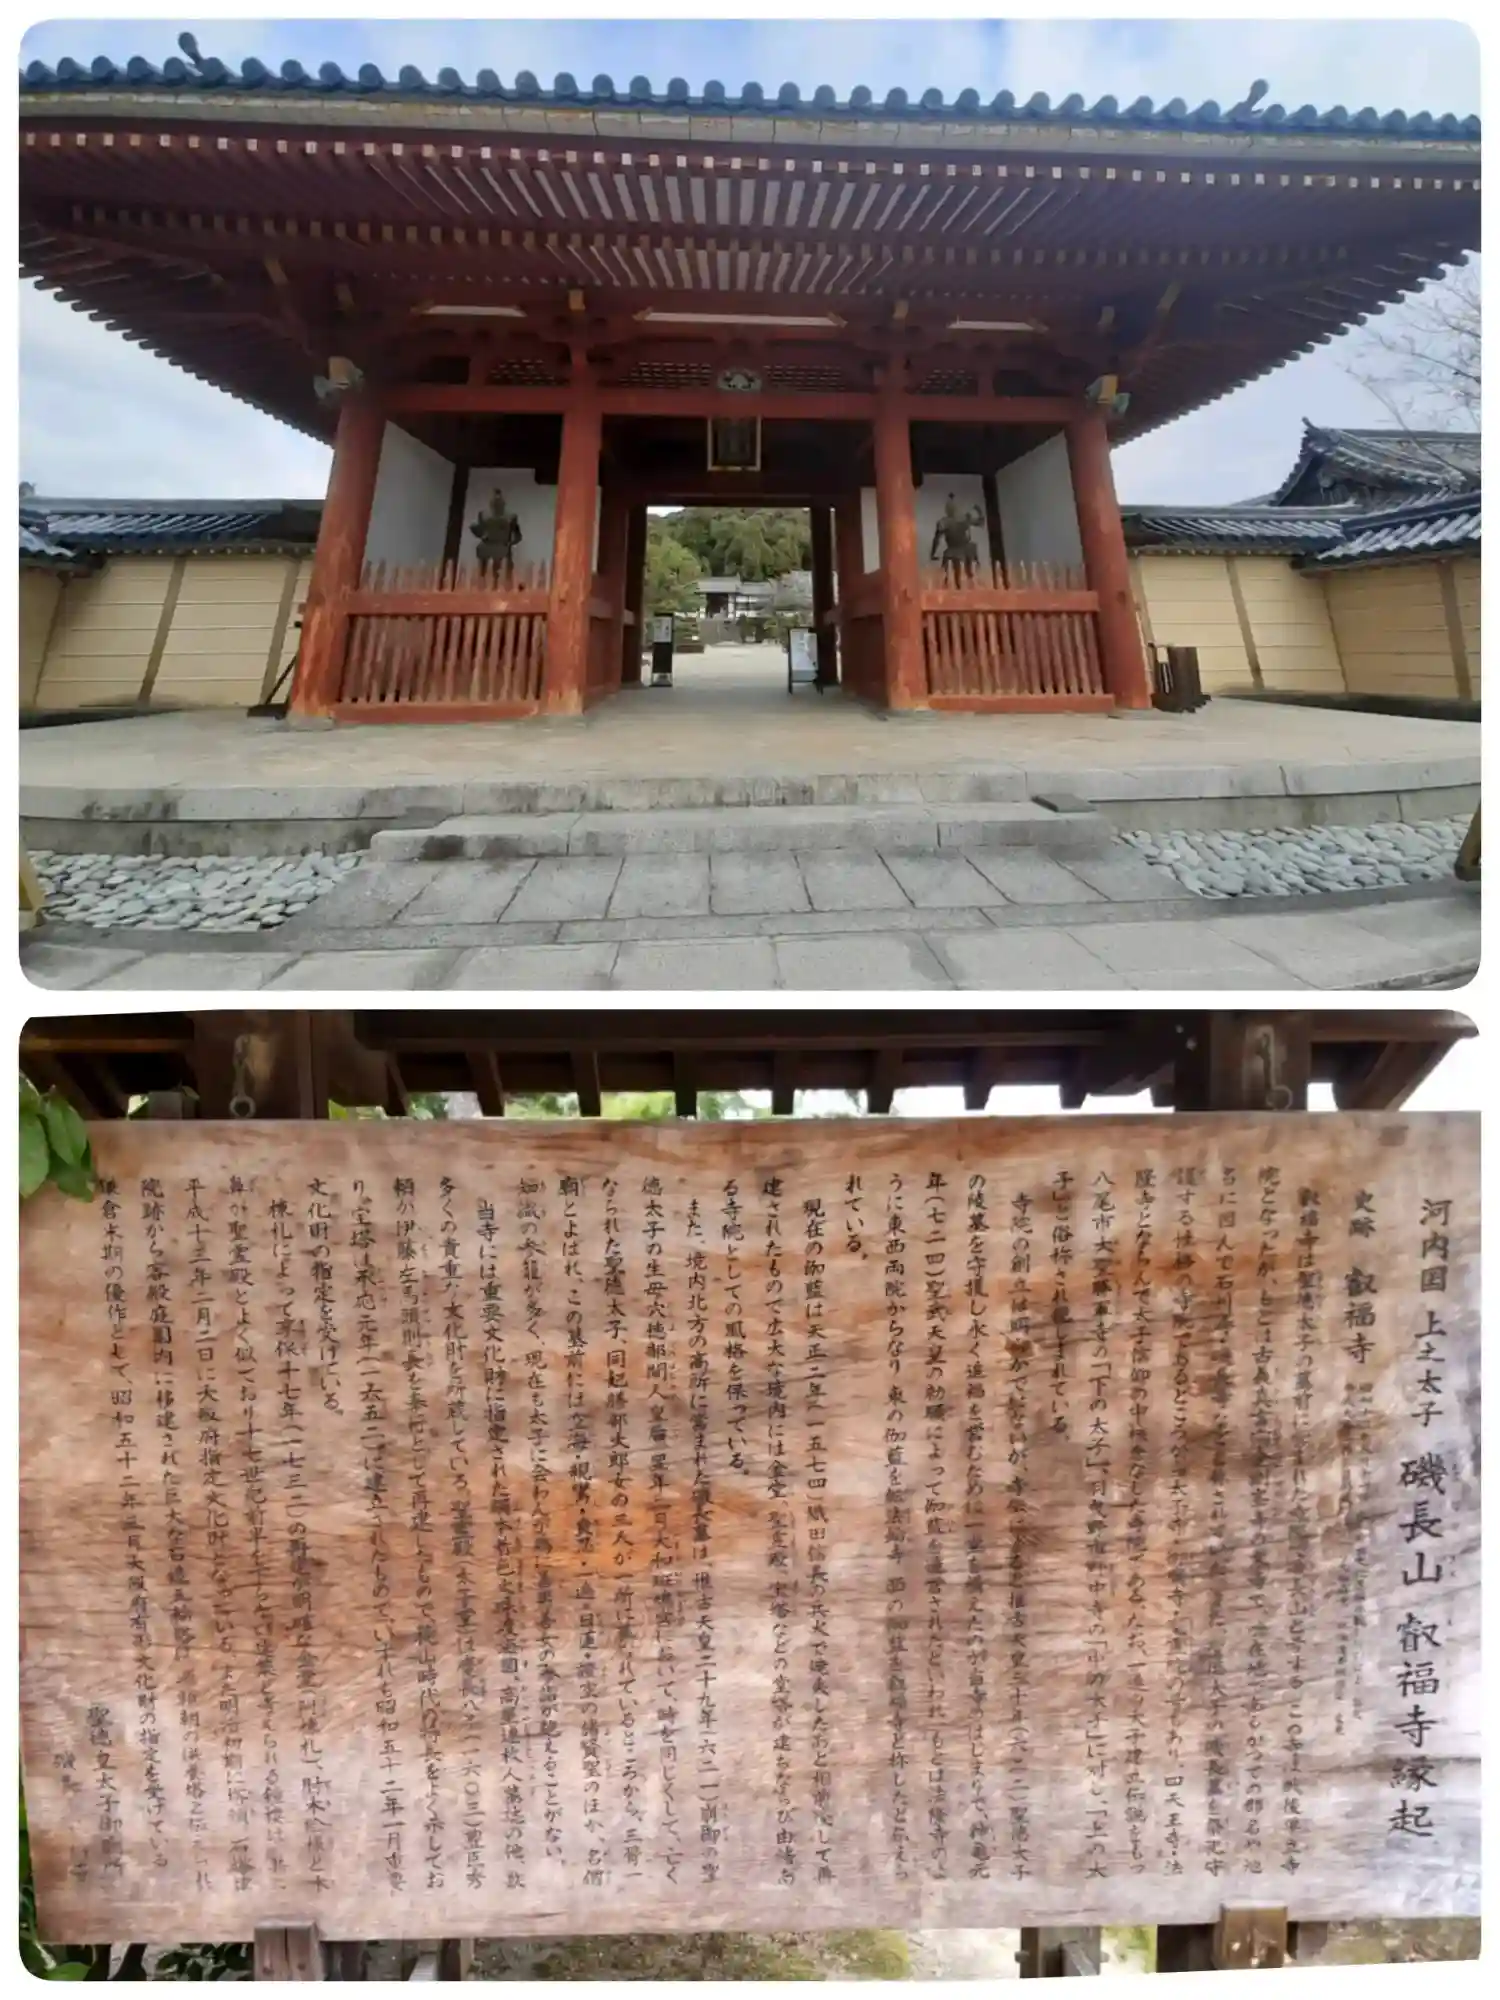 河内国 上之太子 磯長山 叡福寺縁起
史跡 叡福寺
叡福寺は聖徳太子の墓前に
院となったが、もとは古義真言宗
当に因んで石川寺・磯長寺などと称され 聖徳太子の磯長墓を祭祀守
護する性格の寺院であるところから太子寺・御廟寺・聖霊院の号もあり、四天王寺・法
隆寺とならんで太子信仰の中核をなした寺院である。なお、一連の太子建立伝説をもつ
八尾市大聖勝軍寺の「下の太子」、羽曳野市野中寺の「中の太子」に対し、「上の太
子」と俗称され親しまれている。
寺院の創立は明らかでないが、寺伝によると推古天皇三十年(六二二)聖徳太子
の陵墓を守護し永く追福を営むために一堂を構えたのが当寺のはじまりで、神亀元
年(七二四)聖武天皇の勅願によって伽藍を造営されたといわれ、もとは法隆寺のよ
うに東西両院からなり、東の伽藍を転法輪寺、西の伽藍を叡福寺と称したと伝えら
れている。
現在の伽藍は天正二年(一五七四)織田信長の兵火で焼失したあと相前後して再
建されたもので広大な境内には金堂、聖霊殿、宝塔などの堂塔が建ちならび由緒あ
る寺院としての風格を保っている。
また、境内北方の高所に営まれた磯長墓は、推古天皇二十九年(六二一)崩御の聖
徳太子の生母穴穂部間人皇后、翌年二月大和斑鳩宮において、時を同じくして、亡く
なられた聖徳太子、同妃膳部大郎女の三人が一所に葬られているところから、三骨一
廟とよばれ、この墓前には空海・親鸞・良忍・一遍・日蓮・證空の諸賢聖のほか、名僧
知識の参籠が多く、現在も太子に会わんが為に善男善女の参詣が絶えることがない。
当寺には重要文化財に指定された絹本着色文殊渡海図、高屋連枚人墓誌の他、数
多くの貴重な文化財を所蔵している。聖霊殿(太子堂)は慶長八年(一六〇三)豊臣秀
頼が伊藤左馬頭則長を奉行として再建したもので、桃山時代の特長をよく示してお
り、宝塔は承応元年(一六五二)に建立されたもので、いずれも昭和五十二年一月重要
文化財の指定を受けている。
棟札によって享保十七年(一七三二)の再建が明確な金堂(附棟札)、肘木絵様と木
鼻が聖霊殿とよく似ており十七世紀前半を下らない建築と考えられる鐘楼は、共に
平成十三年二月二日に大阪府指定文化財となっている。また明治初期に
院跡から客殿庭園内に移建された巨大な石造五輪塔は
鎌倉末期の優作として、昭和五十二年三月大阪府有形文化財の指定を受けている
聖徳皇太子御廟所